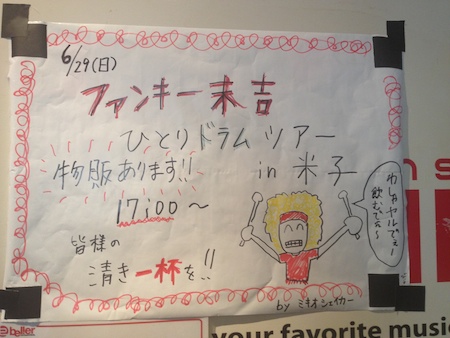 6/29(日)
ファンキー末吉
ひとりドラムツアー
物販あります!! in 米子
17:00〜
わしゃヤルでぇー
飲むでぇ〜
皆様の
清き一杯を!!
by ミキオシェイカー
beller
your favorite music